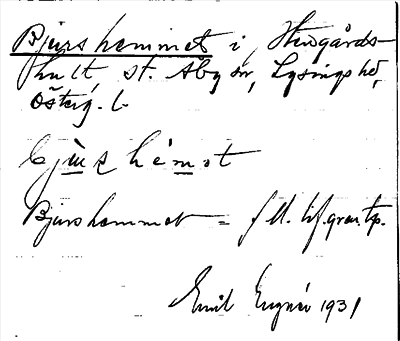 Bjurshemmet i, Stengårds-
hult, st. Åby sn, Lysings hd,
Österg. l.
bjùʂ hémət
Bjurshemmet = f.
Emil Eugnér 1931